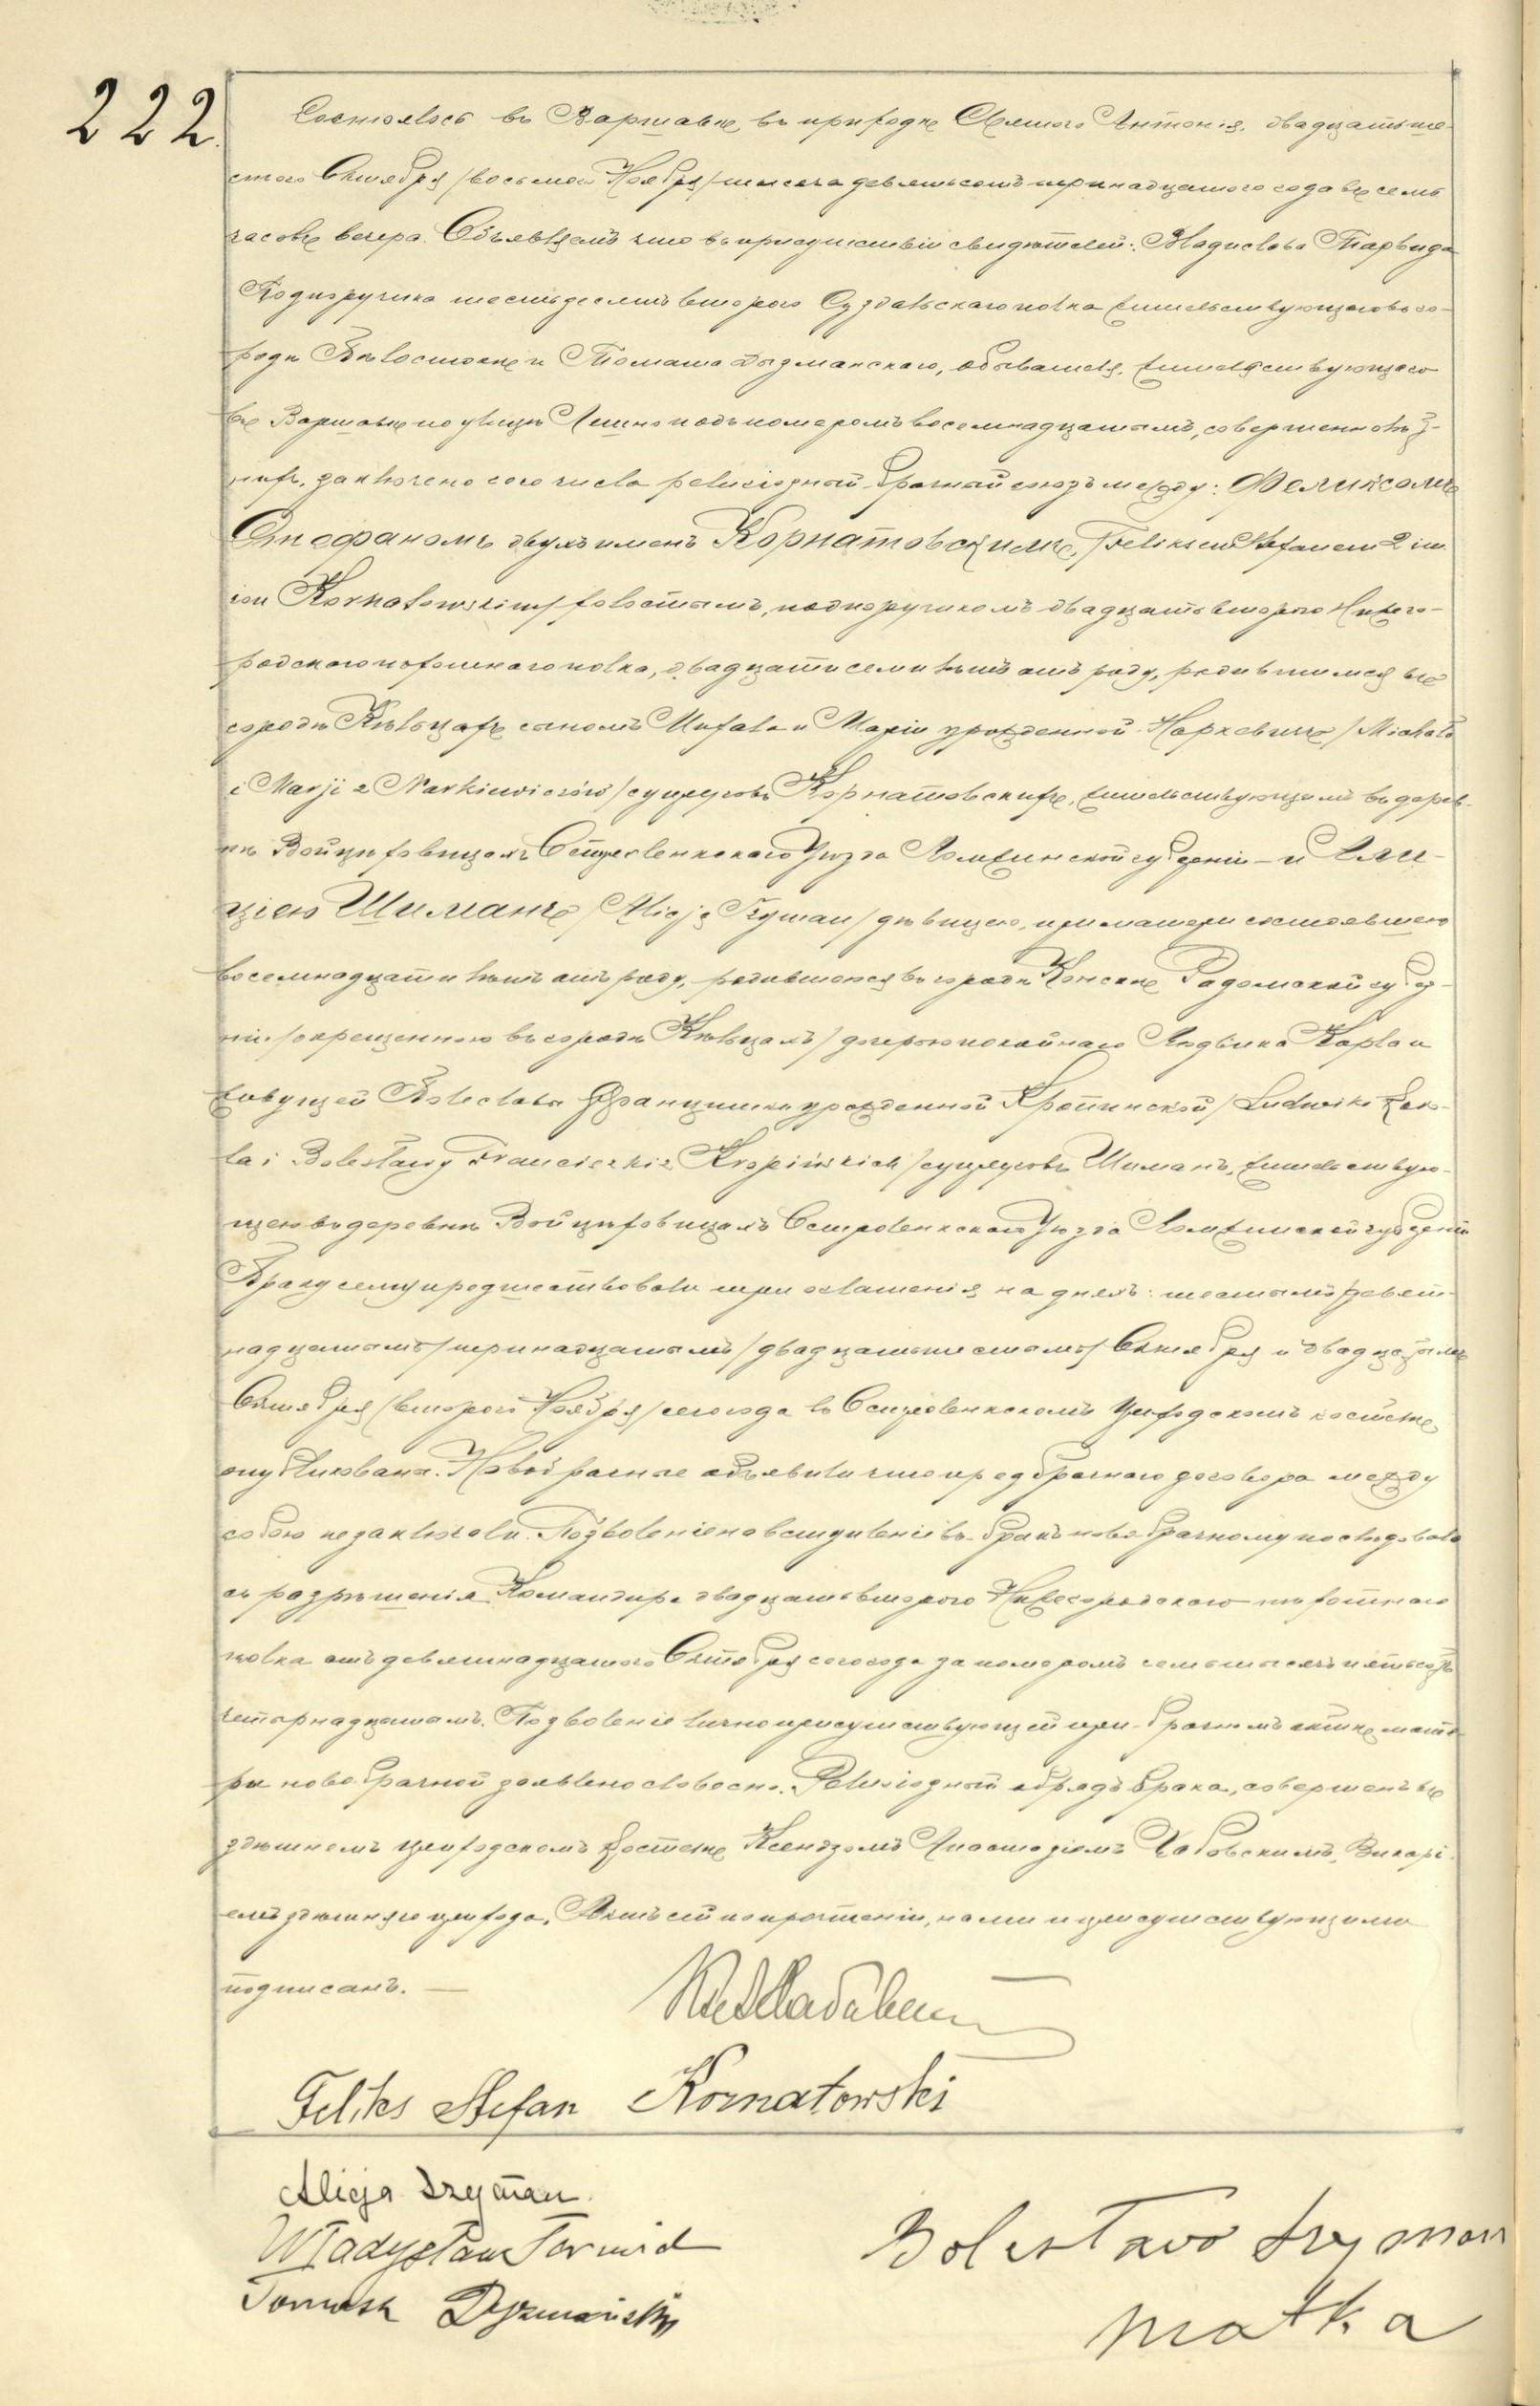 222.
Состоялось въ Варшавѣ, въ приходѣ Святого Антонія, двадцать ше-
стого Октября /восьмого Ноября/ тысяча девятьсотъ тринадцатого года въ семь
часовъ вечера. Объявляемъ что въ присутствіи свидѣтелей: Владислава Тарвида
Подпоручика шестьдесятъ второго Суздальскаго полка жительствующаго въ го-
родѣ Бѣлостокѣ и Томаша Дызманскаго, обывателя, жительствующаго
въ Варшавѣ по улицѣ Лешно подъ номеромъ восемнадцатымъ, совершеннолѣт-
нихъ, заключено сего числа религіозный брачный союзъ между: Феликсомъ
Стефаномъ двухъ именъ Корнатовскимъ, /Feliksem Stefanem 2 im.
ion Kornatowskim/ холостымъ, подпоручикомъ двадцать второго Нижего-
родскаго пѣхотнаго полка, двадцати семи лѣтъ отъ роду, родившимся въ
городѣ Кѣльцахъ сыномъ Михала и Маріи урожденной Наркевичъ /Michała
i Marji z Narkiewiczów/ супруговъ Корнатовскихъ, жительствующимъ въ дерев-
нѣ Войцѣховицахъ Остроленкскаго Уѣзда Ломжинской губерніи – и Али-
цією Шиманъ /Alicją Szyman/ дѣвицею, при матери состоявшею
восемнадцати лѣтъ отъ роду, родившеюся въ городѣ Конскѣ Радомской губер-
ніи /окрещенною въ городѣ Кѣльцахъ/ дочерью покойнаго Людвика Карла и
живущей Болеславы Францишки урожденной Кропинской /Ludwika Karo-
la i Bolesławy Franciszki z Kropińskich/ супруговъ Шиманъ, жительствую-
щею въ деревнѣ Войцѣховицахъ Остроленкскаго Уѣзда Ломжинской губерніи
Браку сему предшествовали три оглашенія на дняхъ: шестымъ /девят-
надцатымъ/ тринадцатымъ /двадцать шестымъ/ Октября и двадцатымъ
Октября /второго Ноября/ сего года въ Остроленкскомъ приходскомъ костелѣ
опубликована. Новобрачные объявили что предбрачнаго договора между
собою не заключали. Позволеніе на вступленіе въ бракъ новобрачному послѣдовало
съ разрѣшенія Командира двадцать второго Нижегородскаго пѣхотнаго
полка отъ девятнадцатого Октября сего года за номеромъ семь тысячъ пятьсотъ
четырнадцатымъ. Позволеніе лично присутствующей при брачномъ актѣ мате-
ри новобрачной заявлено словесно. Религіозный обрядъ брака, совершенъ въ
здѣшнемъ приходскомъ костелѣ Ксендзомъ Викарі-
емъ здѣшняго прихода. Актъ сей по прочтеніи, нами и присутствующими
подписанъ. —
Feliks Stefan Kornatowski
Alicja Szyman.
Władysław Tarwid
Bolesława Szyman
Tomasz Dyzmański
matka